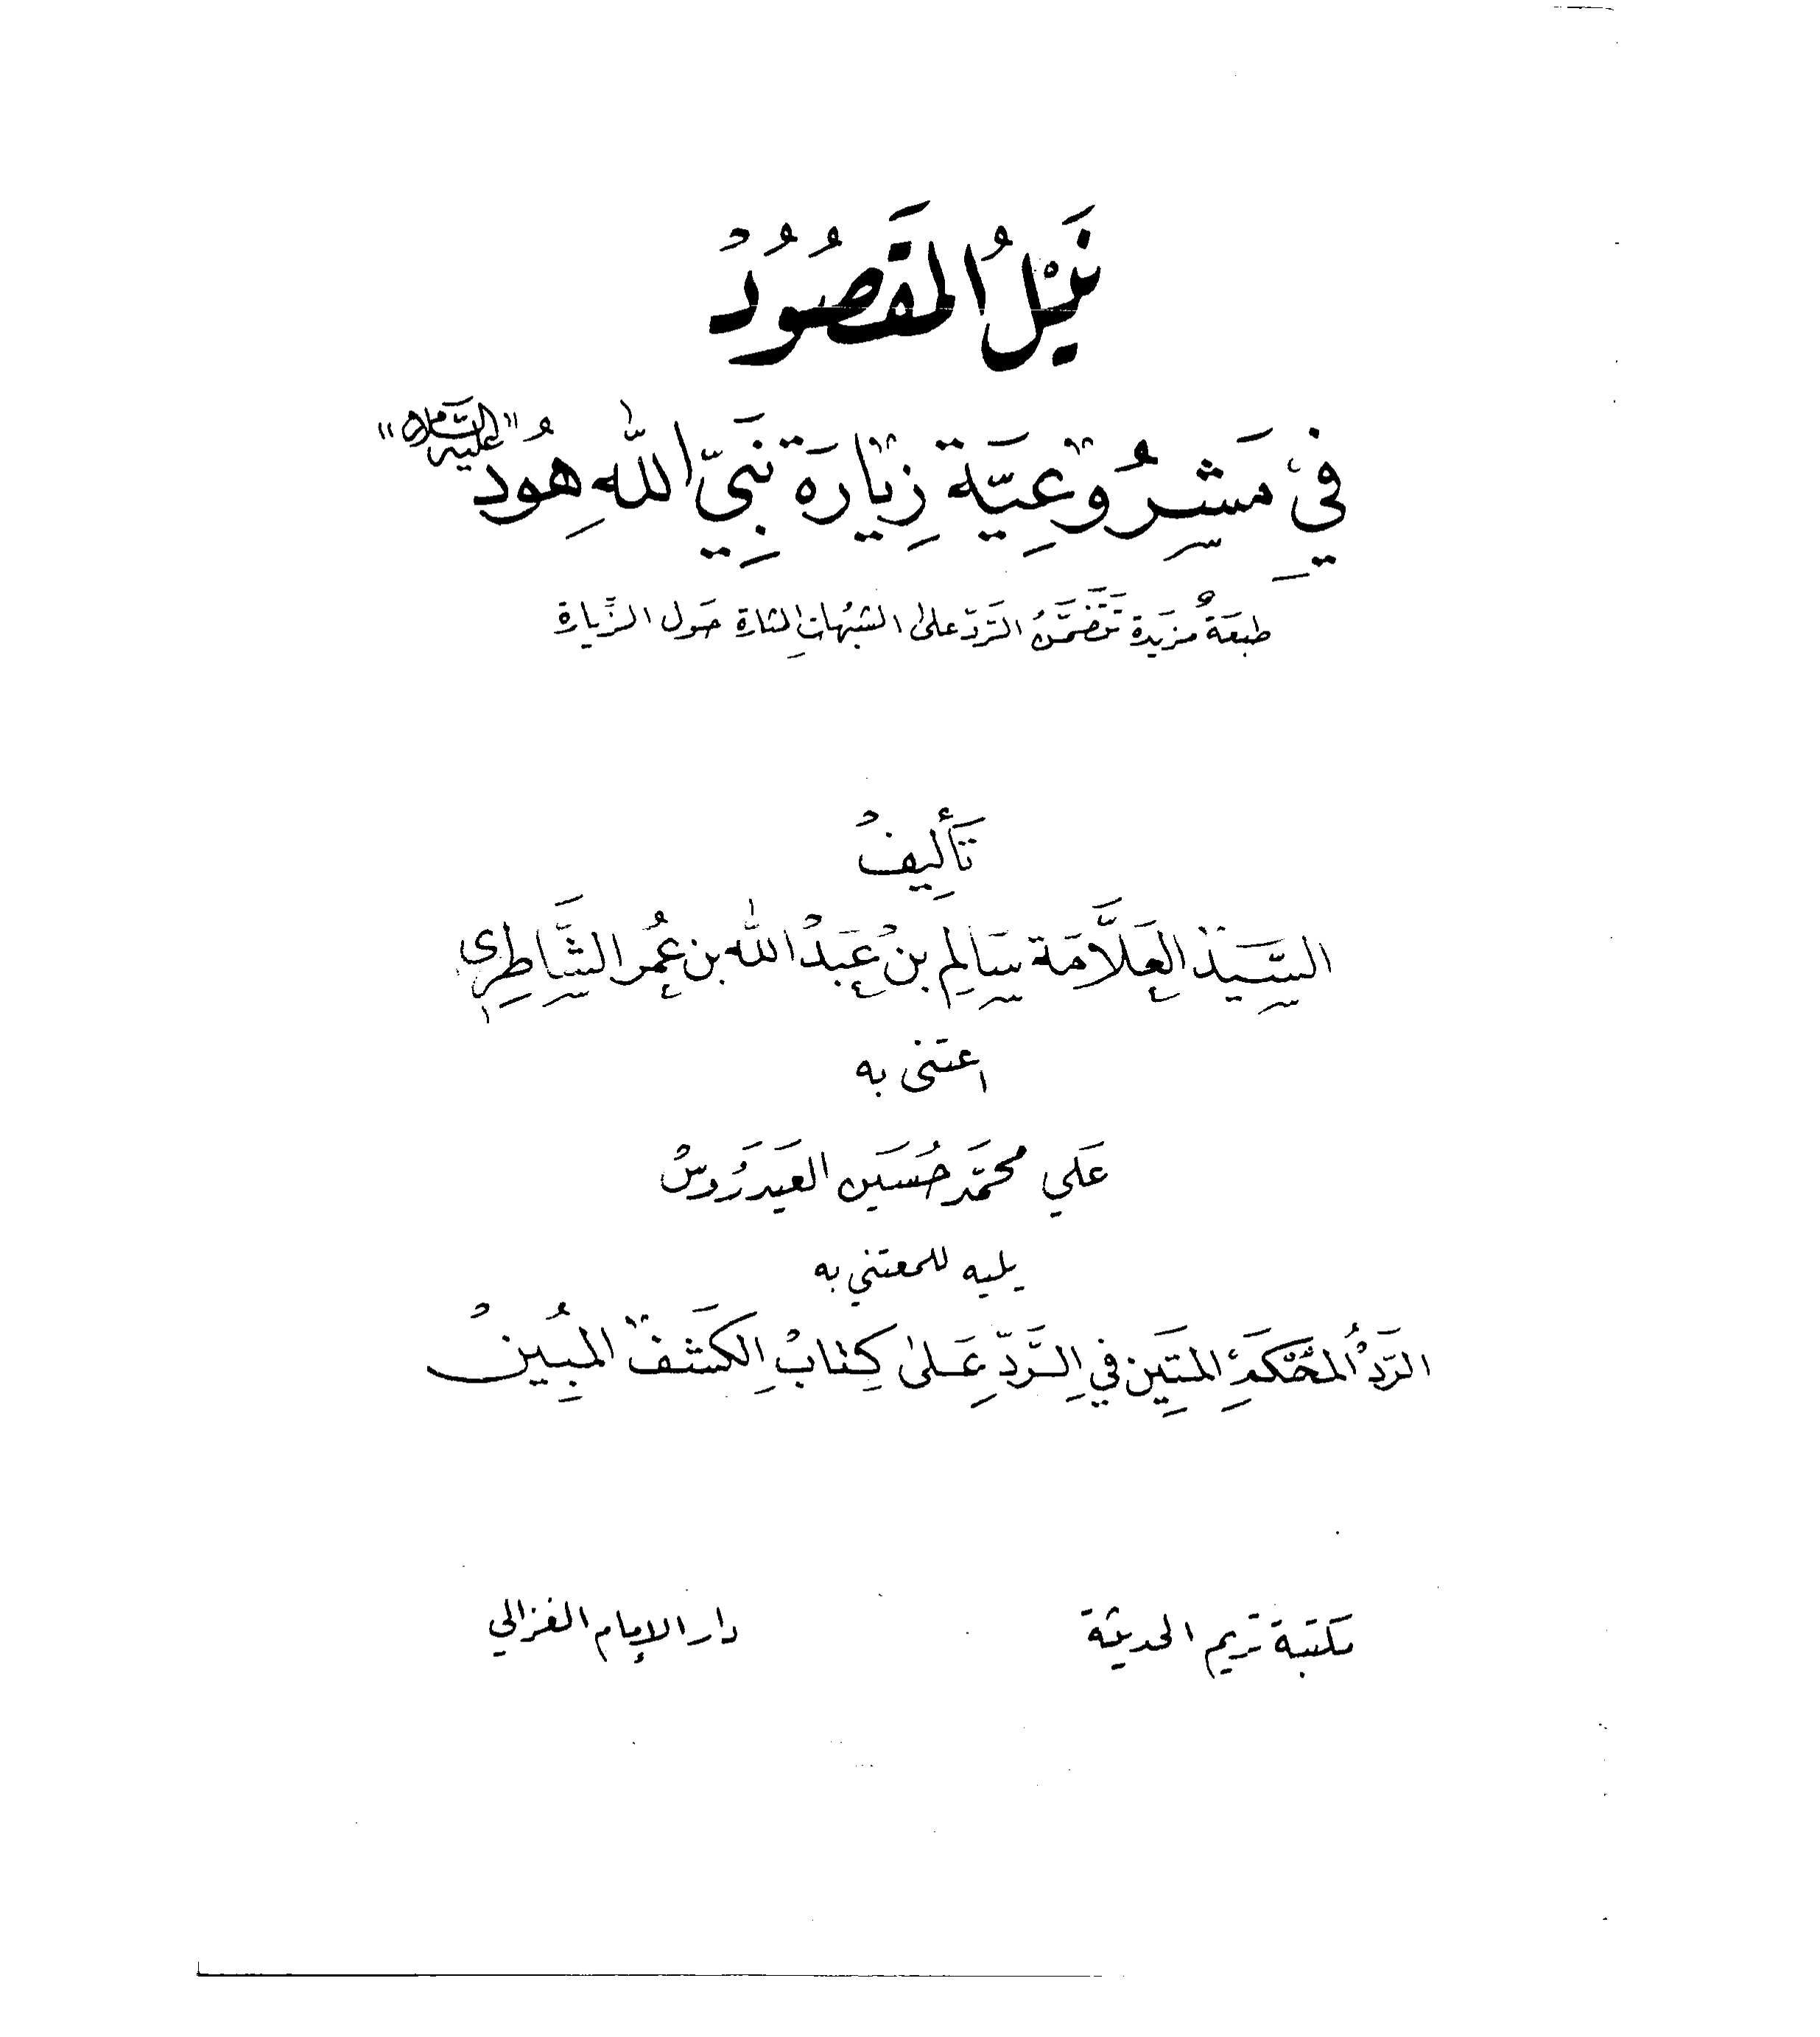 نَيْلُ المَقَصُودُ
في مَشرُوعِيَّة زِيَارَة نَبِيّ اللهِ هُود "عليه السَّلام"
طبعَةٌ مزيَدة تتَضَمَّنُ الرَّدّ علىٰ الشبُهاتِ المثارة حَول الزِّيارة
تَأليفُ
السَّيِّدْ العَلَّامَة سَالِم بنْ عَبدْ الله بن عُمر الشَّاطِري
اعتنى به
عَلي محمَّد حُسَين العَيدَرُوسْ
يليه للمعتني به
الرَّدُ المُحْكَمَ المتِين في الرَّدِّ عَلىٰ كِتابْ الكَشفْ المُبِينْ
مكتبة تريم الحديثة
دار الإمام الغزالي